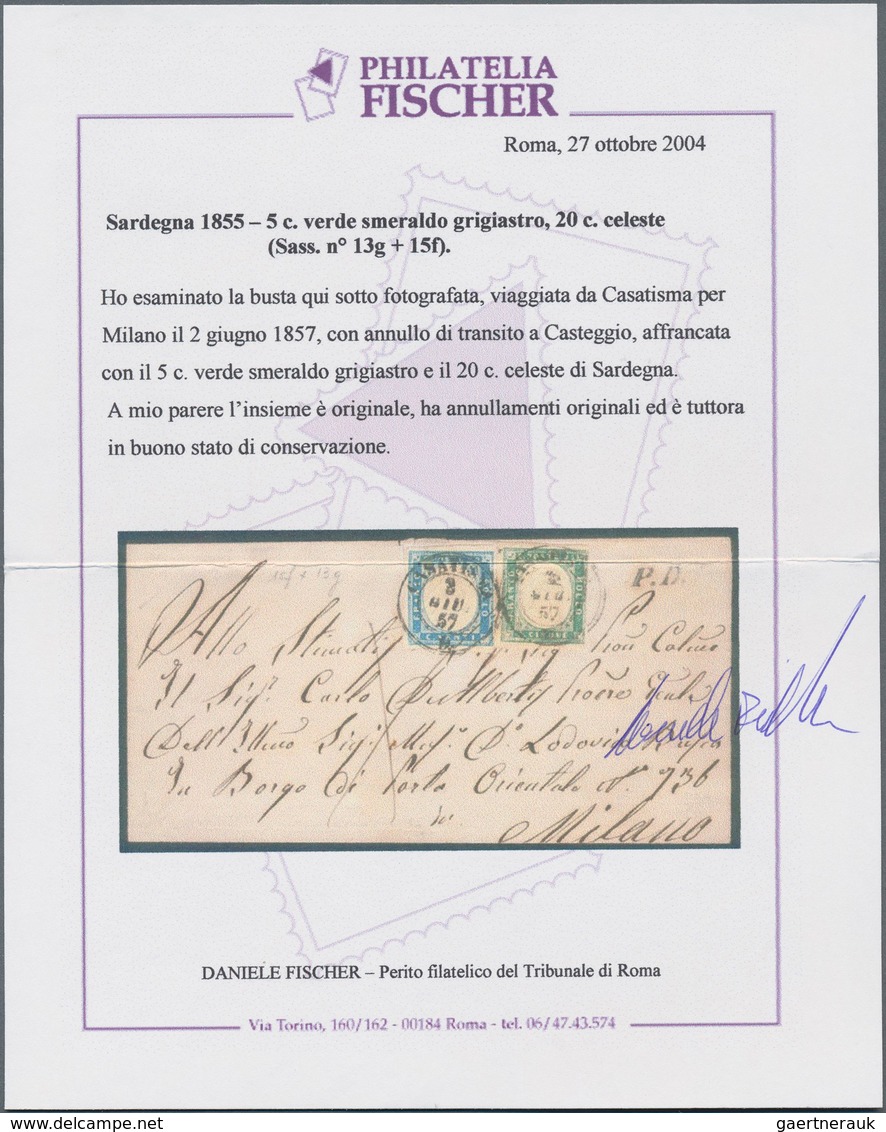 PHILATELIA
FISCHER
Roma, 27 ottobre 2004
Sardegna 1855 – 5 c. verde smeraldo grigiastro, 20 c. celeste
(Sass. n° 13g + 15f).
Ho esaminato la busta qui sotto fotografata, viaggiata da Casatisma per
Milano il 2 giugno 1857, con annullo di transito a Casteggio, affrancata
con il 5 c. verde smeraldo grigiastro e il 20 c. celeste di Sardegna.
A mio parere l’insieme è originale, ha annullamenti originali ed è tuttora
in buono stato di conservazione.
15f + 13g
CASATISMA
GIU.
57
57
P.D.
Allo
Il Sig. Carlo DeAlbertis
Dell'
In Borgo di Porta Orientale N° 736
Milano
DANIELE FISCHER – Perito filatelico del Tribunale di Roma
Via Torino, 160/162 - 00184 Roma - tel. 06/47.43.574
gaertnerauk